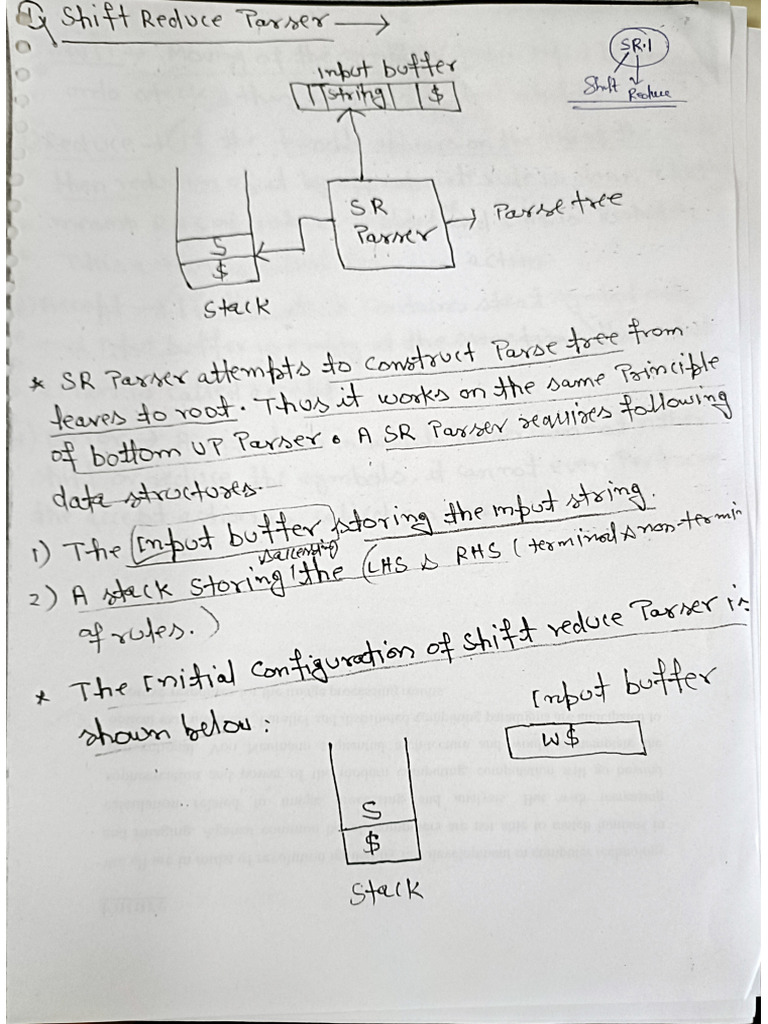 1) Shift Reduce Parser →
SR.1
Shift Reduce
input buffer
string $
SR
Parser
→ Parse tree
S
$
Stack
* SR Parser attempts to construct Parse tree from
leaves to root. Thus it works on the same Principle
of bottom UP Parser. A SR Parser requires following
data structures.
1) The Input buffer storing the input string.
2) A stack storing the (LHS & RHS (terminal & non-termin
of rules.)
* The Initial configuration of shift reduce Parser is
shown below:
Input buffer
W$
S
$
Stack